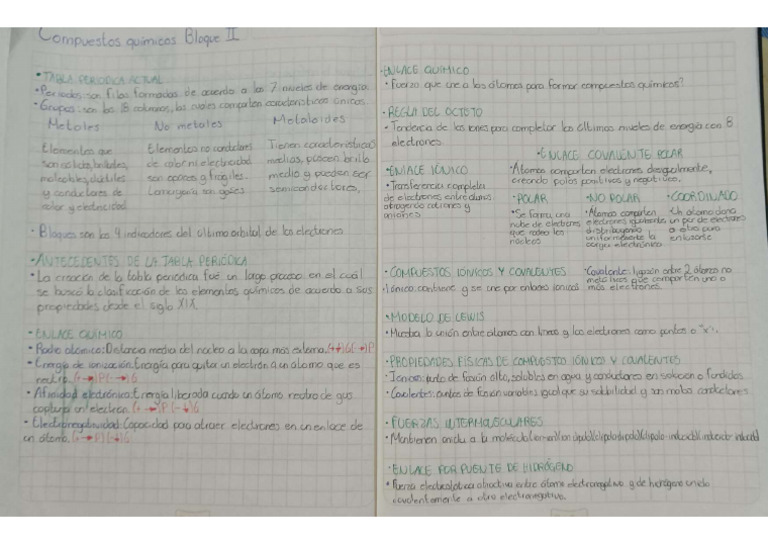 Compuestos químicos Bloque II
• TABLA PERIODICA ACTUAL
• Periodos: son filas formadas de acuerdo a los 7 niveles de energía.
• Grupos: son las 18 columnas, las cuales comparten características únicas.
Metales No metales Metaloides
Elementos que
son solidos, brillantes,
maleables, dúctiles
y conductores de
calor y electricidad
Elementos no conductores
de calor ni electricidad
son opacos y frágiles.
La mayoría son gases
Tienen características
medias, pueden brillo
medio y pueden ser
semiconductores,
• Bloques son los 4 indicadores del último orbital de los electrones
• ANTECEDENTES DE LA TABLA PERIÓDICA
• La creación de la tabla periódica fué un largo proceso en el cuál
se buscó la clasificación de los elementos químicos de acuerdo a sus
propiedades desde el siglo XIX.
• ENLACE QUÍMICO
• Radio atómico: Distancia media del núcleo a la capa más externa.
• Energía de ionización: Energía para quitar un electrón a un átomo que es
neutro.
• Afinidad electrónica: Energía liberada cuando un átomo neutro de gas
captura un electron.
• Electronegatividad: Capacidad para atraer electrones en un enlace de
un átomo.
• ENLACE QUÍMICO
• Fuerza que une a los átomos para formar compuestos químicos?
• REGLA DEL OCTETO
• Tendencia de los iones para completar los últimos niveles de energía con 8
electrones
• ENLACE IÓNICO
• Transferencia completa
de electrones entre átomos
atrayendo cationes y
aniones
• ENLACE COVALENTE POLAR
• Átomos comparten electrones desigualmente,
creando polos positivos y negativos.
• POLAR • NO POLAR • COORDINADO
• Se forma una
nube de electrones
que rodea los
núcleos
• Átomos comparten
electrones igualmente,
distribuyendo
uniformemente la
carga electrónica
• Un átomo dona
un par de electrones
a otro para
enlazarse
• COMPUESTOS IÓNICOS Y COVALENTES
• Iónico: contiene y se une por enlaces iónicos
• Covalente: unión entre 2 átomos no
metálicos que comparten uno o
más electrones.
• MODELO DE LEWIS
• Muestra la unión entre átomos con lineas y los electrones como puntos o "x".
• PROPIEDADES FISICAS DE COMPUESTOS IÓNICOS Y COVALENTES
• Ionicos: punto de fusión alto, solubles en agua y conductores en solución o fundidos
• Covalentes: puntos de fusión variables, igual que su solubilidad y son malos conductores
• FUERZAS INTERMOLECULARES
• Mantienen unida a la molécula
• ENLACE POR PUENTE DE HIDRÓGENO
• Fuerza electrostática atractiva entre átomo electronegativo y de hidrógeno unido
covalentemente a otro electronegativo.